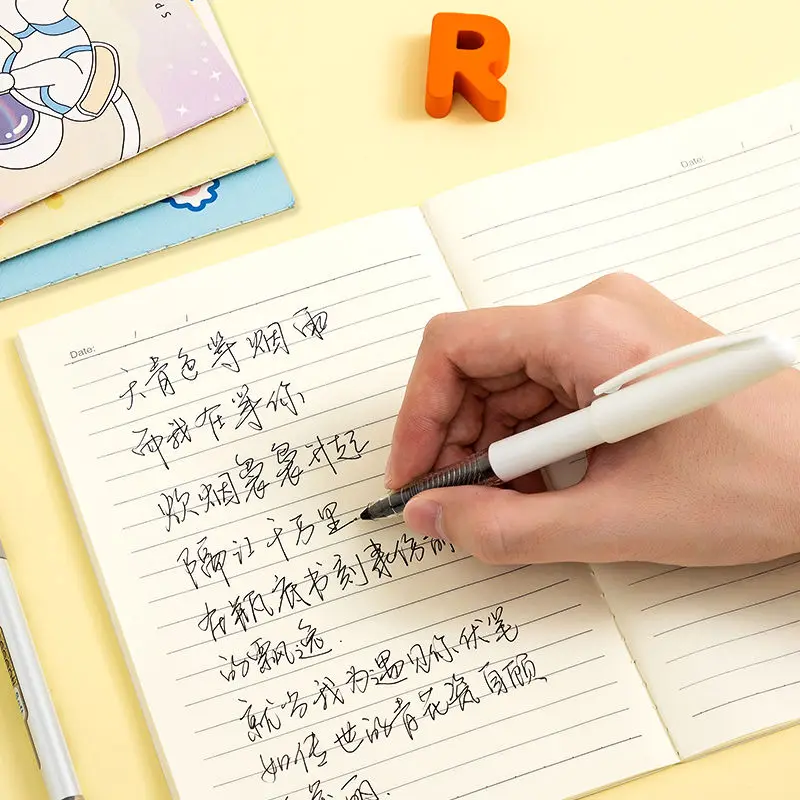 Date: / /
Date: / /
天青色等烟雨
而我在等你
炊烟袅袅升起
隔江千万里
在瓶底书刻隶仿
的飘逸.
就当我为遇见你伏笔
如传世的青花瓷自顾
美丽.
R